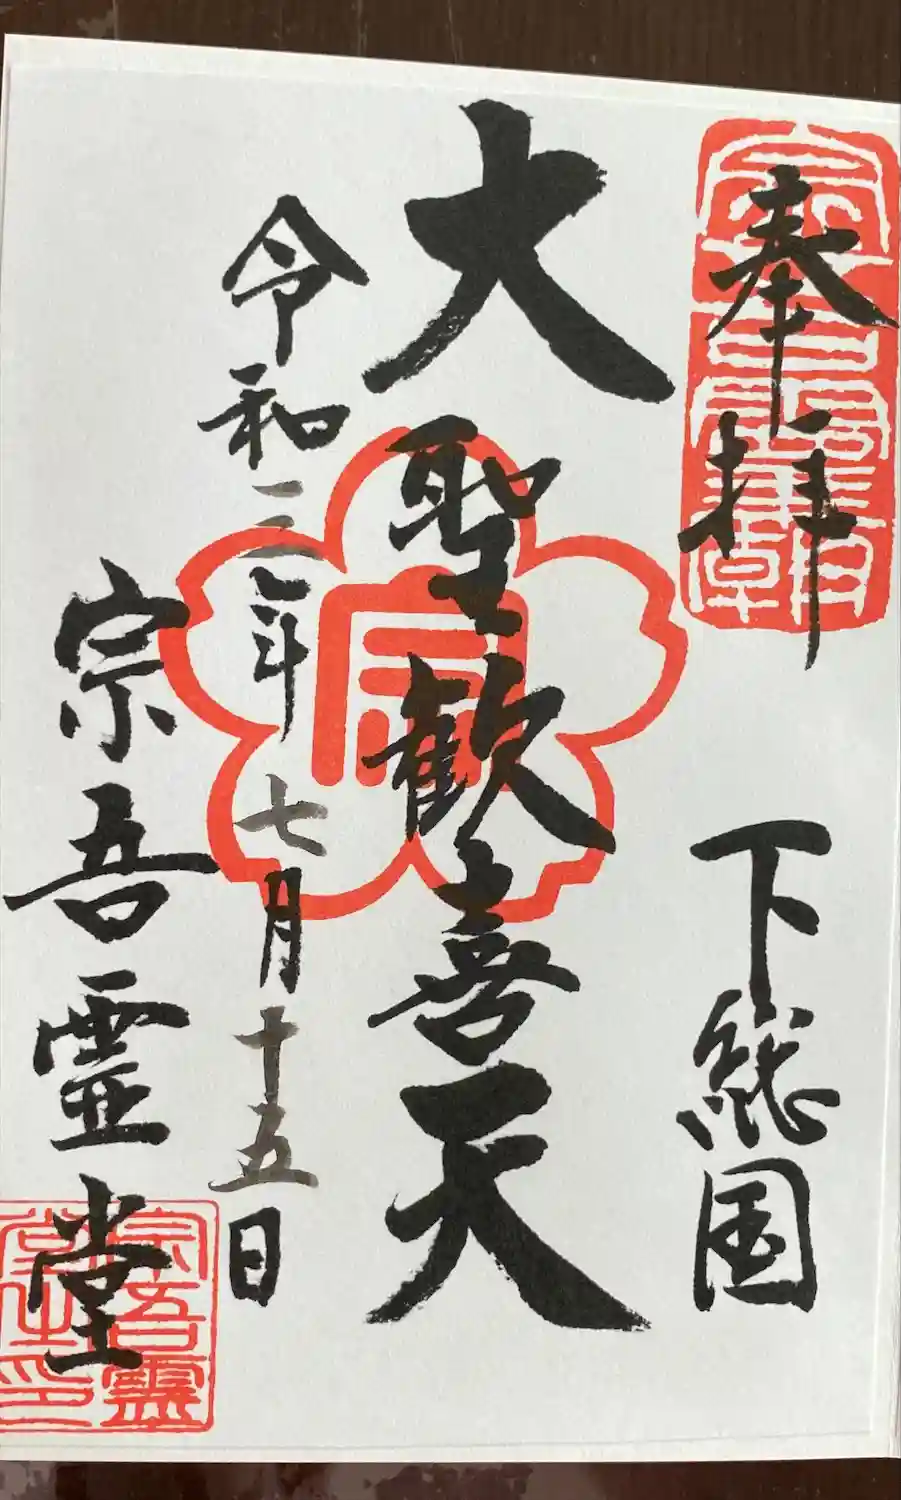 奉拝
下総国
大聖歓喜天
令和三年七月十五日
宗吾霊堂
宗吾霊
堂之印